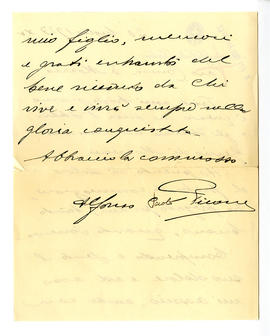 mio figlio, memori
e grati entrambi del
bene ricevuto da Chi
vive e vivrà sempre nella
gloria conquistata.
Abbraccio la commosso.
Alfonso Paolo Picone